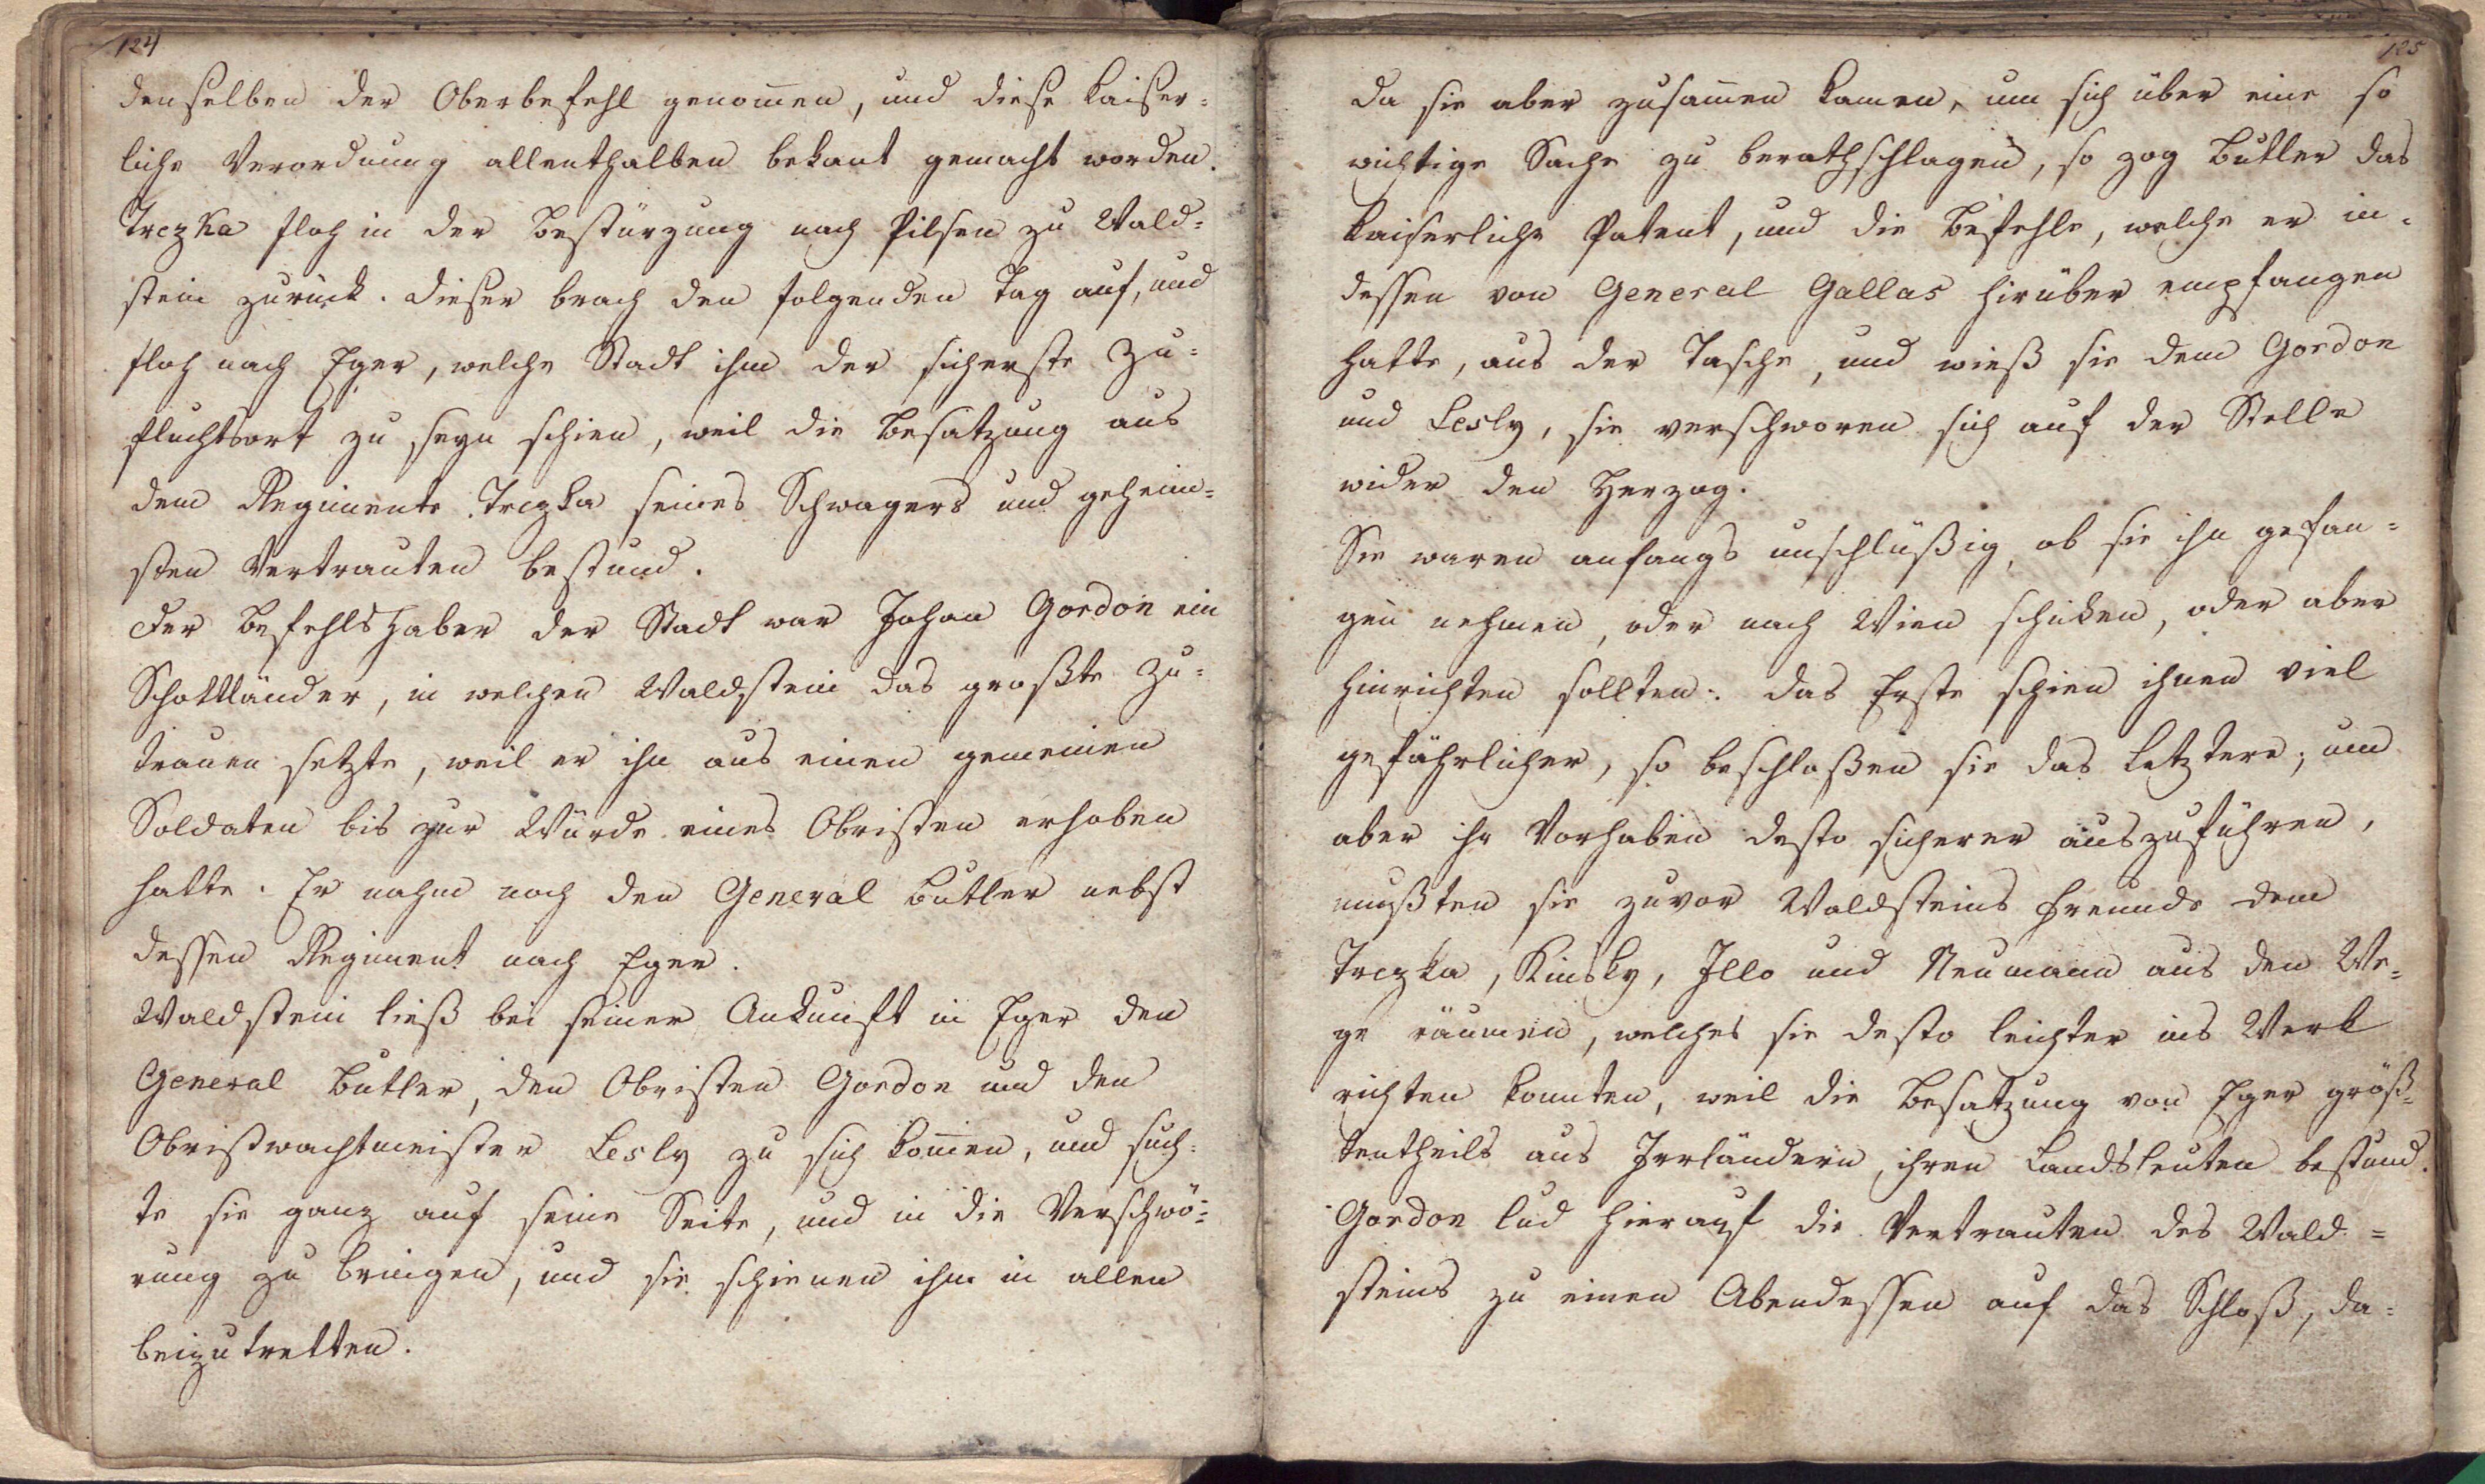 124
denselben der Oberbefehl genom̄en, und diese kaiser=
liche Verordnung allenthalben bekant gemacht worden.
Trczka floh in der Bestürzung nach Pilsen zu Wald=
stein zurück. Dieser brach den folgenden Tag auf, und
floh nach Eger, welche Stadt ihm der sicherste Zu=
fluchtsort zu seyn schien, weil die Besatzung aus
dem Regimente Trczka seines Schwagers und geheim=
sten Vertrauten bestund.
Der Befehlshaber der Stadt war Johan Gordon ein
Schottländer, in welchen Waldstein das großte Zu=
trauen setzte, weil er ihn aus einen gemeinen
Soldaten bis zur Würde eines Obristen erhoben
hatte. Er nahm noch den General Butler nebst
dessen Regiment nach Eger.
Waldstein ließ bei seiner Ankunft in Eger den
General Butler, den Obristen Gordon und den
Obristwachtmeister Lesly zu sich kom̄en, und such=
te sie ganz auf seine Seite, und in die Verschwö=
rung zu bringen, und sie schienen ihm in allen
beizutretten.
125
Da sie aber zusam̄en kamen, um sich über eine so
wichtige Sache zu berathschlagen, so zog Butler das
kaiserliche Patent, und die Befehle, welche er in=
dessen von General Gallas hirüber empfangen
hatte, aus der Tasche, und wieß sie dem Gordon
und Lesly, sie verschworen sich auf der Stelle
wider den Herzog.
Sie waren anfangs unschlüßig, ob sie ihn gefan=
gen nehmen, oder nach Wien schicken, oder aber
hinrichten sollten: das Erste schien ihnen viel
gefährlicher, so beschloßen sie das Letztere; um
aber ihr Vorhaben desto sicherer auszuführen,
mußten sie zuvor Waldsteins Freunde dem
Trczka, Kinsky, Illo und Neumann aus den We=
ge räumen, welches sie desto leichter ins Werk
richten konnten, weil die Besatzung von Eger größ=
tentheils aus Irrländern, ihren Landsleuten bestund.
Gordon lud hierauf die Vertrauten des Wald=
steins zu einen Abendessen auf das Schloß, da=